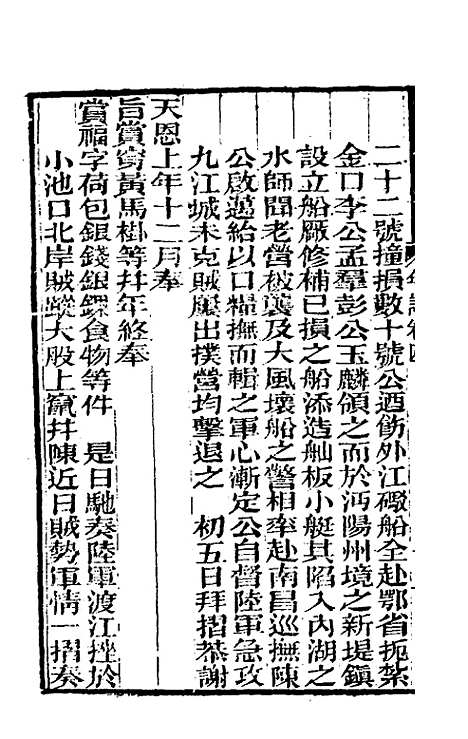 二十二號撞損數十號公迺飭外江礮船全赴鄂省扼紮
金口李公孟羣彭公玉麟領之而於沔陽州境之新堤鎮
設立船厰修補已損之船添造舢板小艇其陷入內湖之
水師聞老營被襲及大風壞船之警相率赴南昌巡撫陳
公啟邁給以口糧撫而輯之軍心漸定公自督陸軍急攻
九江城未克賊屢出撲營均擊退之　初五日拜摺恭謝
天恩上年十二月奉
旨賞穿黃馬褂等并年終奉
賞福字荷包銀錢銀錁食物等件　是日馳奏陸軍渡江挫於
小池口北岸賊蹤大股上竄并陳近日賊勢軍情一摺奏